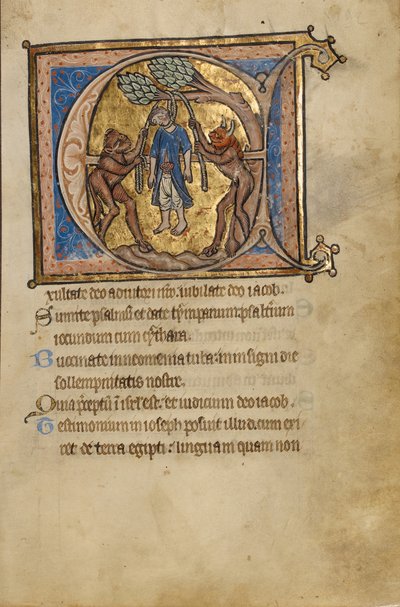 E
xultate deo adiutori nr̄o. iubilate deo iacob.
Sumite psalmū et date tȳmpanum. psaltīum
iocundum cum cȳthara.
Buccinate in neomenia tuba: in insigni die
sollempnitatis nostre.
Quia p̄ceptū in isrl̄ est. et iudicium deo iacob.
Testimonium in ioseph posuit illud. cum exi
ret de terra egipti: linguam quam non